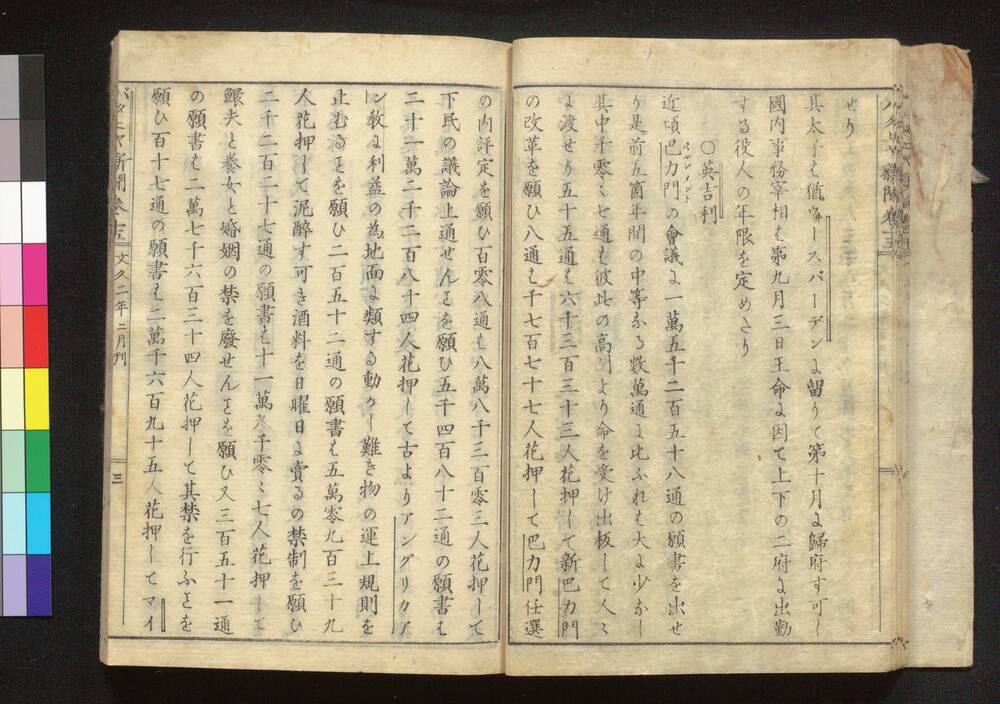 せり
其太子ハ猶ホースバーデンニ留りて第十月ニ歸府す可し
國内事務宰相ハ第九月三日王命ニ因て上下の二府ニ出勤
する役人の年限を定めたり
〇英吉利
近頃巴力門の會議ニ一萬五千二百五十八通の願書を出せ
パルリメント
り是前五箇年間の中等なる數萬通ニ比ふれハ大ニ少なし
其中千零〻七通ハ彼此の高門より命を受け出板して人〻
ニ渡せり五十五通ハ六千三百三十三人花押して新巴力門
の改革を願ひ八通ハ千七百七十七人花押して巴力門任選
の内評定を願ひ百零八通ハ八萬八千三百零三人花押して
下民の議論上通せんことを願ひ五千四百八十二通の願書ハ
二十一萬二千二百八十四人花押して古よりアングリカア
ン教ハ利益の為地面ニ類する動かし難き物の運上規則を
止むることを願ひ二百五十二通の願書ハ五萬零九百三十九
人花押して泥醉す可き酒料を日曜日ニ賣るの禁制を願ひ
二千二百二十七通の願書ハ十一萬千零〻七人花押して
鰥夫と養女と婚姻の禁を廢せんことを願ひ又三百五十一通
の願書ハ二萬七千六百三十四人花押して其禁を行ふことを
願ひ百十七通の願書ハ二萬千六百九十五人花押してマイ
バタヒヤ新聞巻十五 文久二年二月刊 三